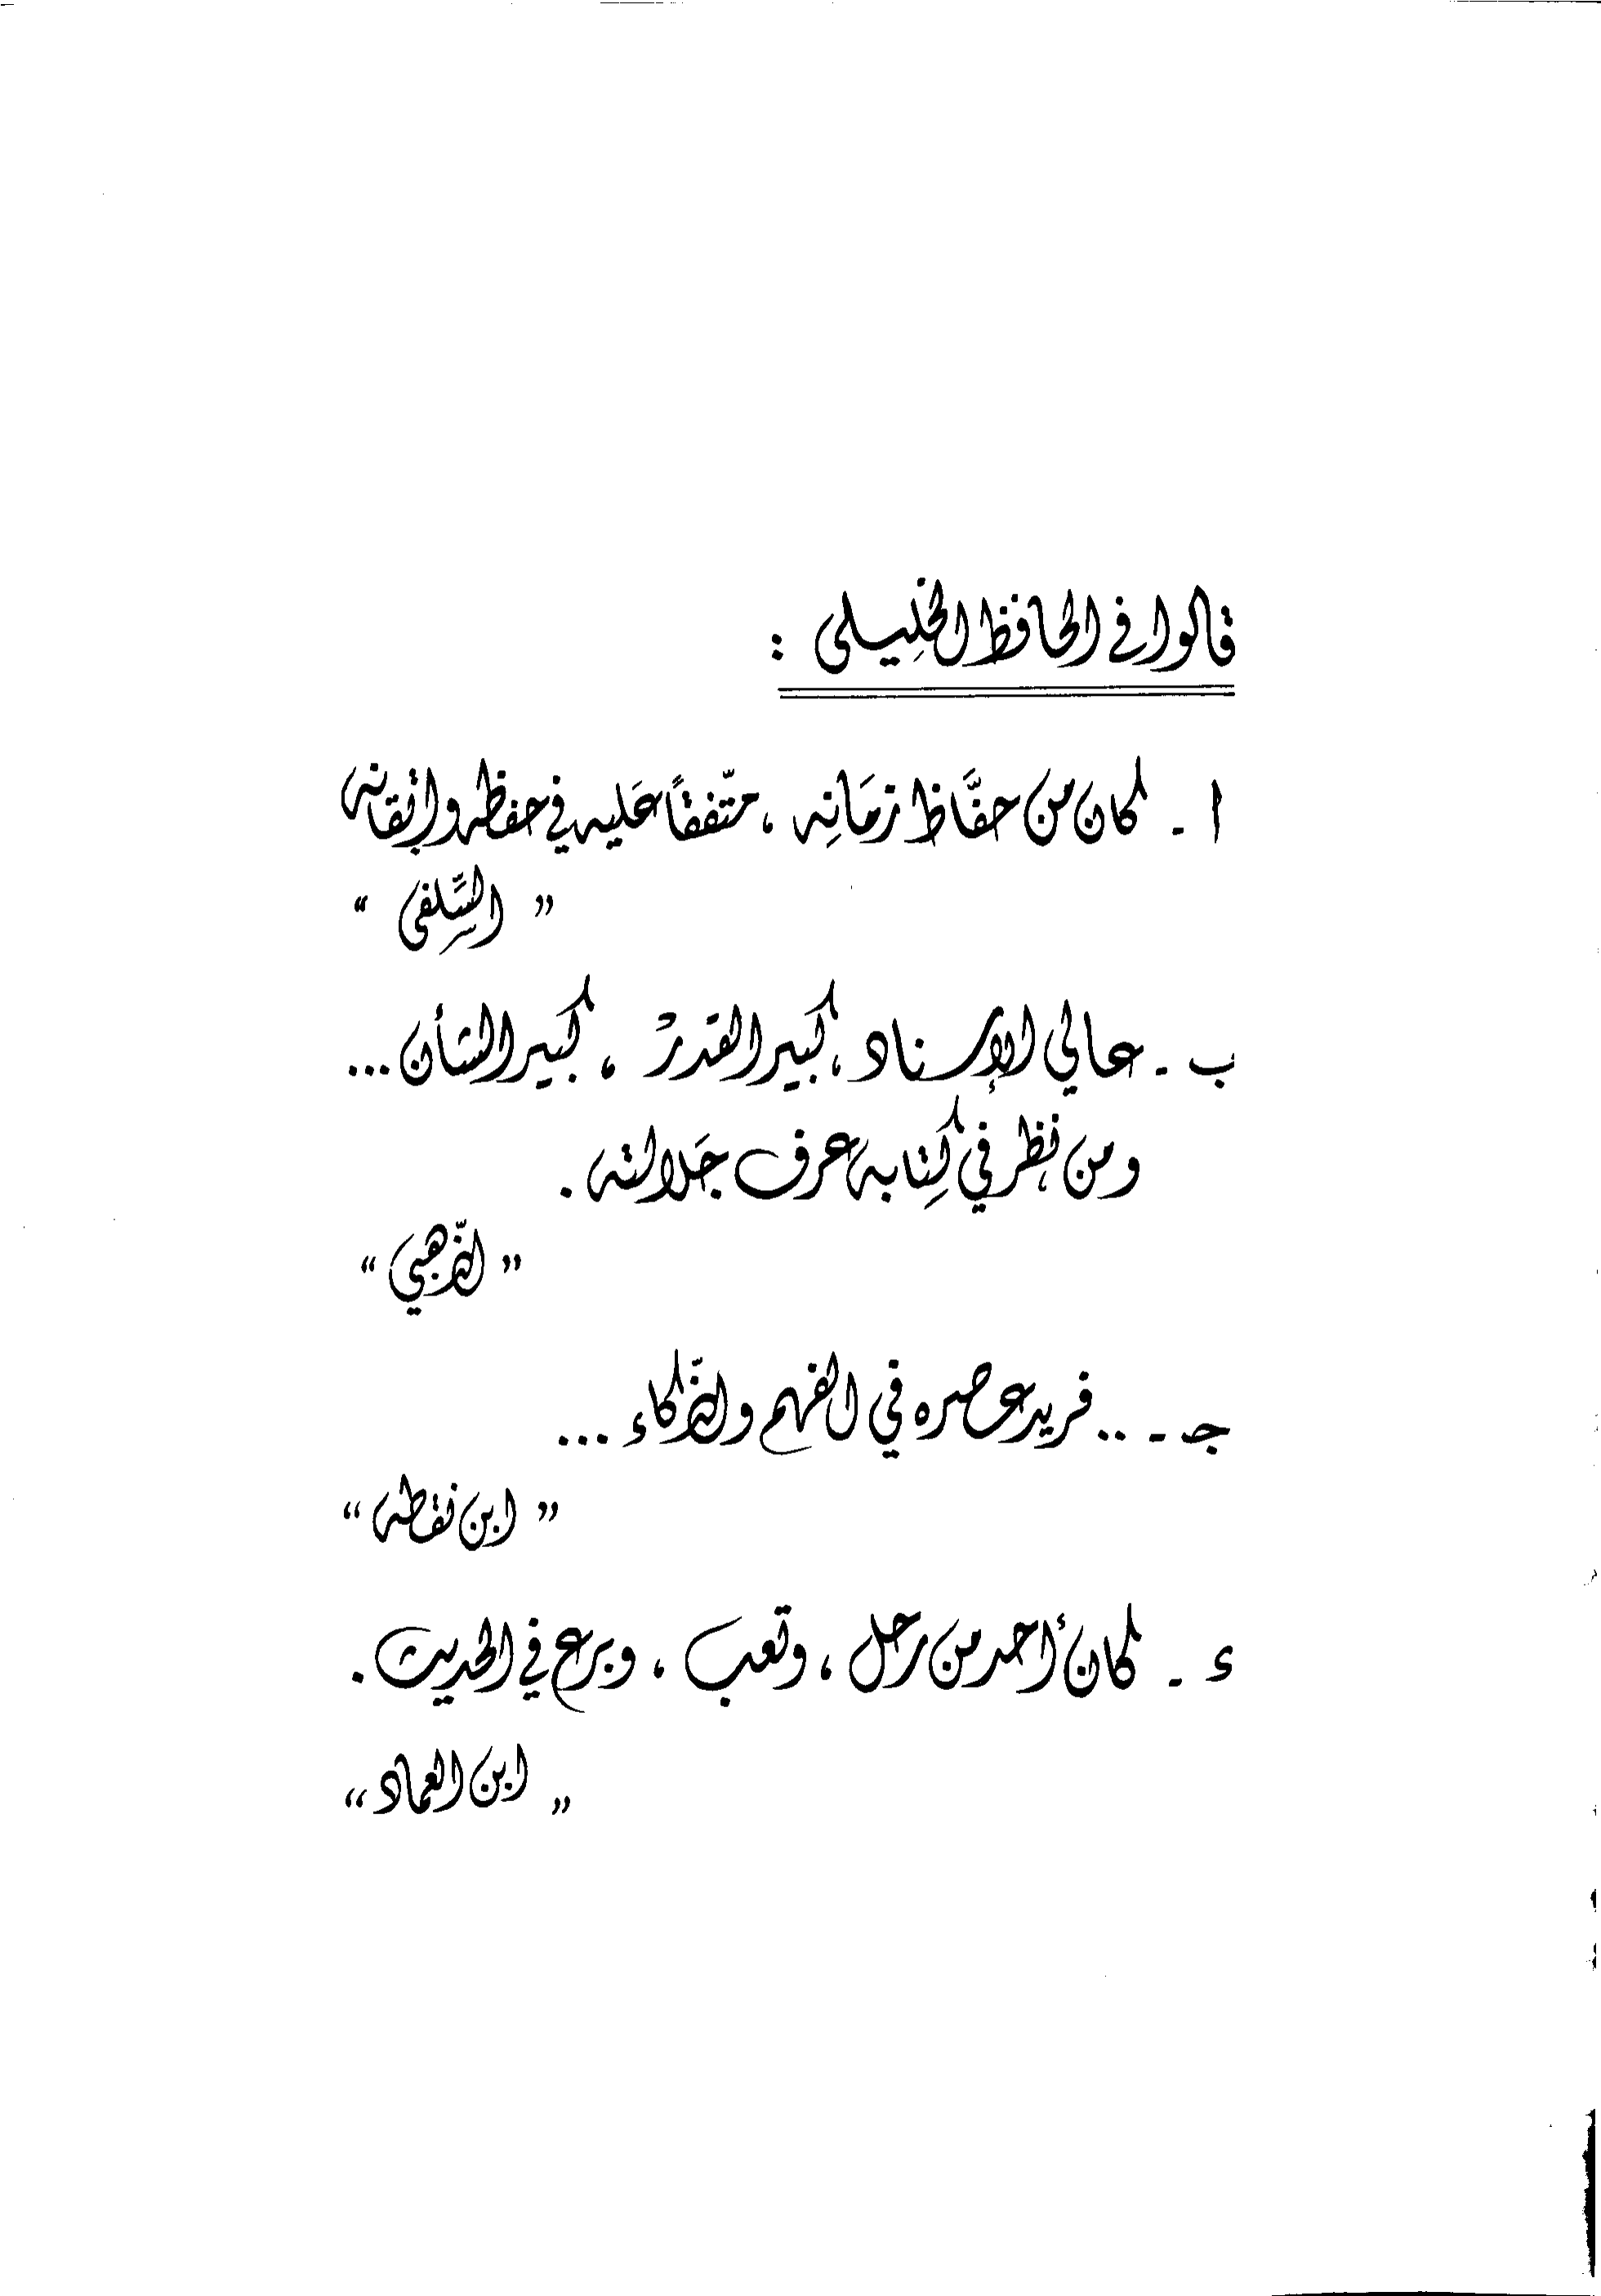 قالوا في الحافظ الخليلي :
ا - كان من حفَّاظ زمَانِه ، متّفقاً عَليه في حفظه وإتقانه
" السِّلفي "
ب - عالي الإسناد ، كبير القدرْ ، كبير الشأن ...
ومن نظر في كِتابه عرف جَلالته .
" الذّهبي "
جـ - .. فريد عصره في الفهم والذّكاء ...
" ابن نقطه "
د - كان أحد من رحل ، وتعب ، وبرع في الحديث .
" ابن العماد "